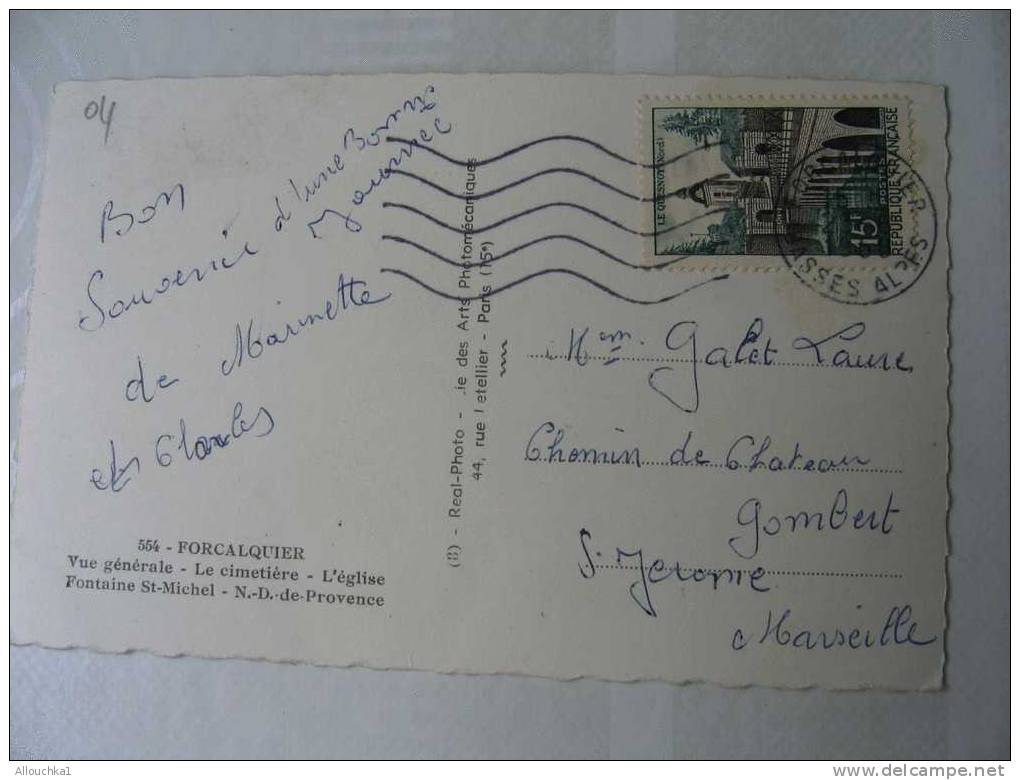 04
Bon
Souvenir d'une Bonne
Journée
de Marinette
et Charles
554 - FORCALQUIER
Vue générale - Le cimetière - L'église
Fontaine St-Michel - N.-D.-de-Provence
(B) - Real-Photo - ie des Arts Photomécaniques
44, rue Letellier - Paris (15e)
LE QUESNOY (Nord)
15F
POSTES
REPUBLIQUE FRANÇAISE
SSES ALPES
Mem. Galet Laure
Chemin de Chateau
Gombert
St Jerome
Marseille
Allouchka1